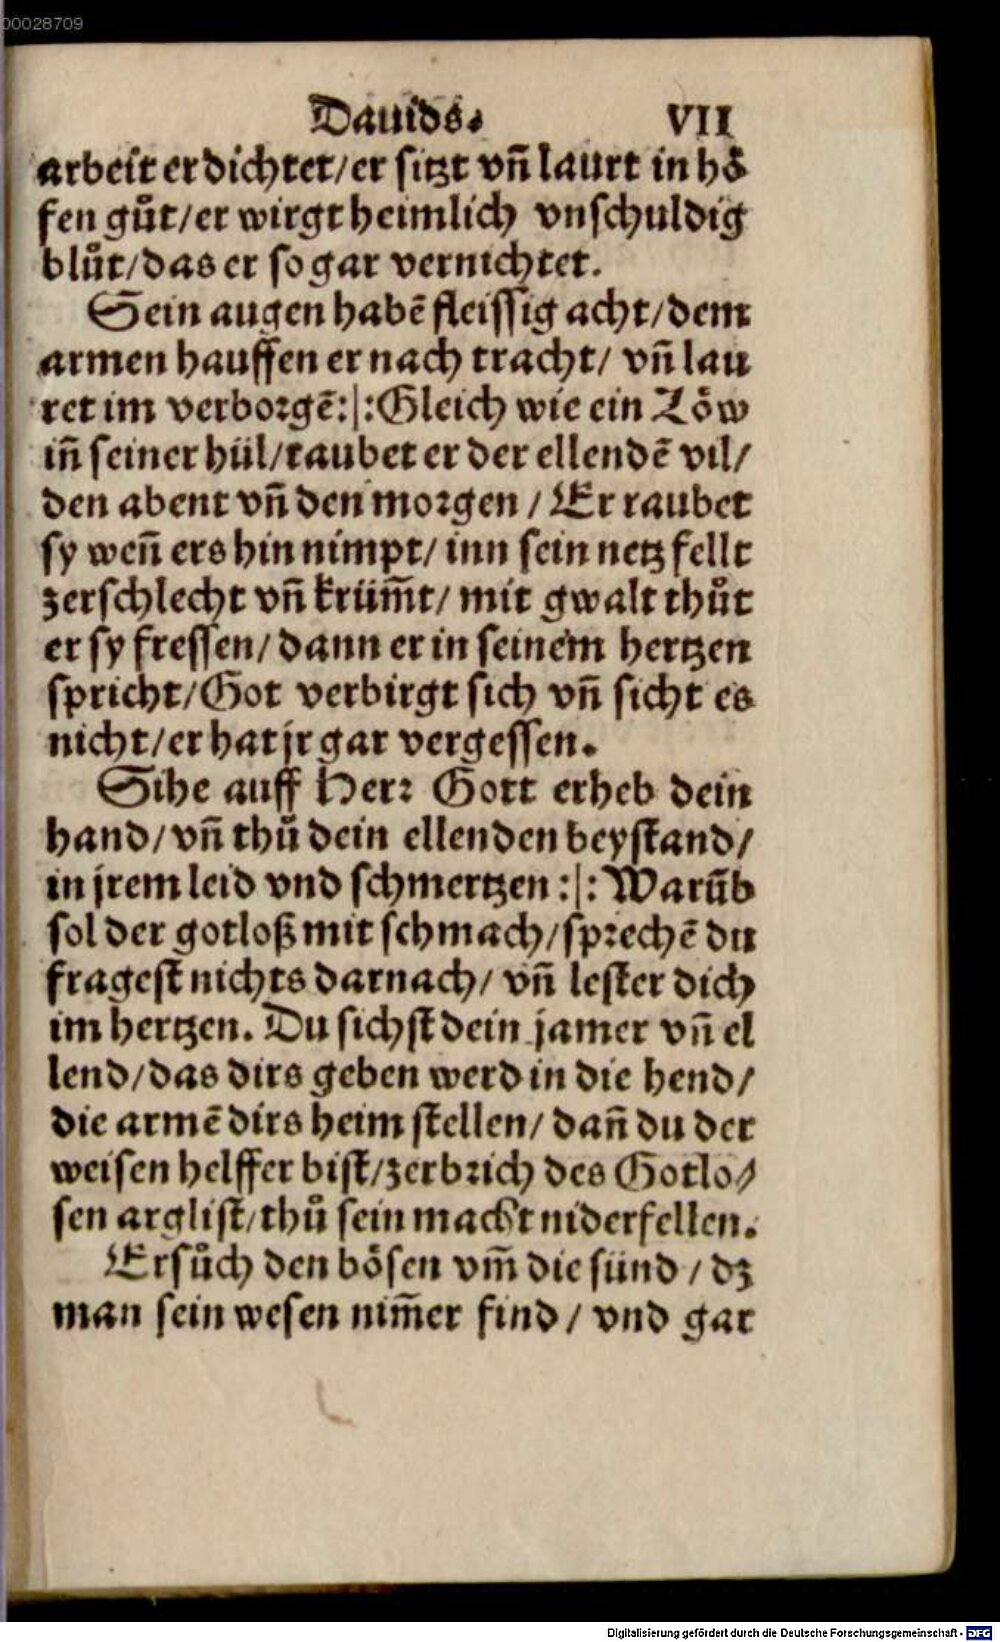 00028709
Dauids. VII
arbeit erdichtet/er sitzt vñ laurt in hoͤ
fen guͦt/er wirgt heimlich vnschuldig
bluͦt/das er so gar vernichtet.
Sein augen habē fleissig acht/dem
armen hauffen er nach tracht/ vñ lau
ret im verborgē:|:Gleich wie ein Loͤw
iñ seiner hül/raubet er der ellendē vil/
den abent vñ den morgen / Er raubet
sy weñ ers hin nimpt/ inn sein netz fellt
zerschlecht vñ krüm̄t/ mit gwalt thuͦt
er sy fressen/ dann er in seinem hertzen
spricht/Got verbirgt sich vñ sicht es
nicht/er hat jr gar vergessen.
Sihe auff Herr Gott erheb dein
hand/vñ thuͦ dein ellenden beystand/
in jrem leid vnd schmertzen :|: Warūb
sol der gotloß mit schmach/sprechē du
fragest nichts darnach/ vñ lester dich
im hertzen. Du sichst dein jamer vñ el
lend/das dirs geben werd in die hend/
die armē dirs heim stellen/ dañ du der
weisen helffer bist/zerbrich des Gotlo/
sen arglist/thuͦ sein macht niderfellen.
Ersuͦch den boͤsen vm̄ die sünd / dz
man sein wesen nim̄er find / vnd gar
Digitalisierung gefördert durch die Deutsche Forschungsgemeinschaft - DFG